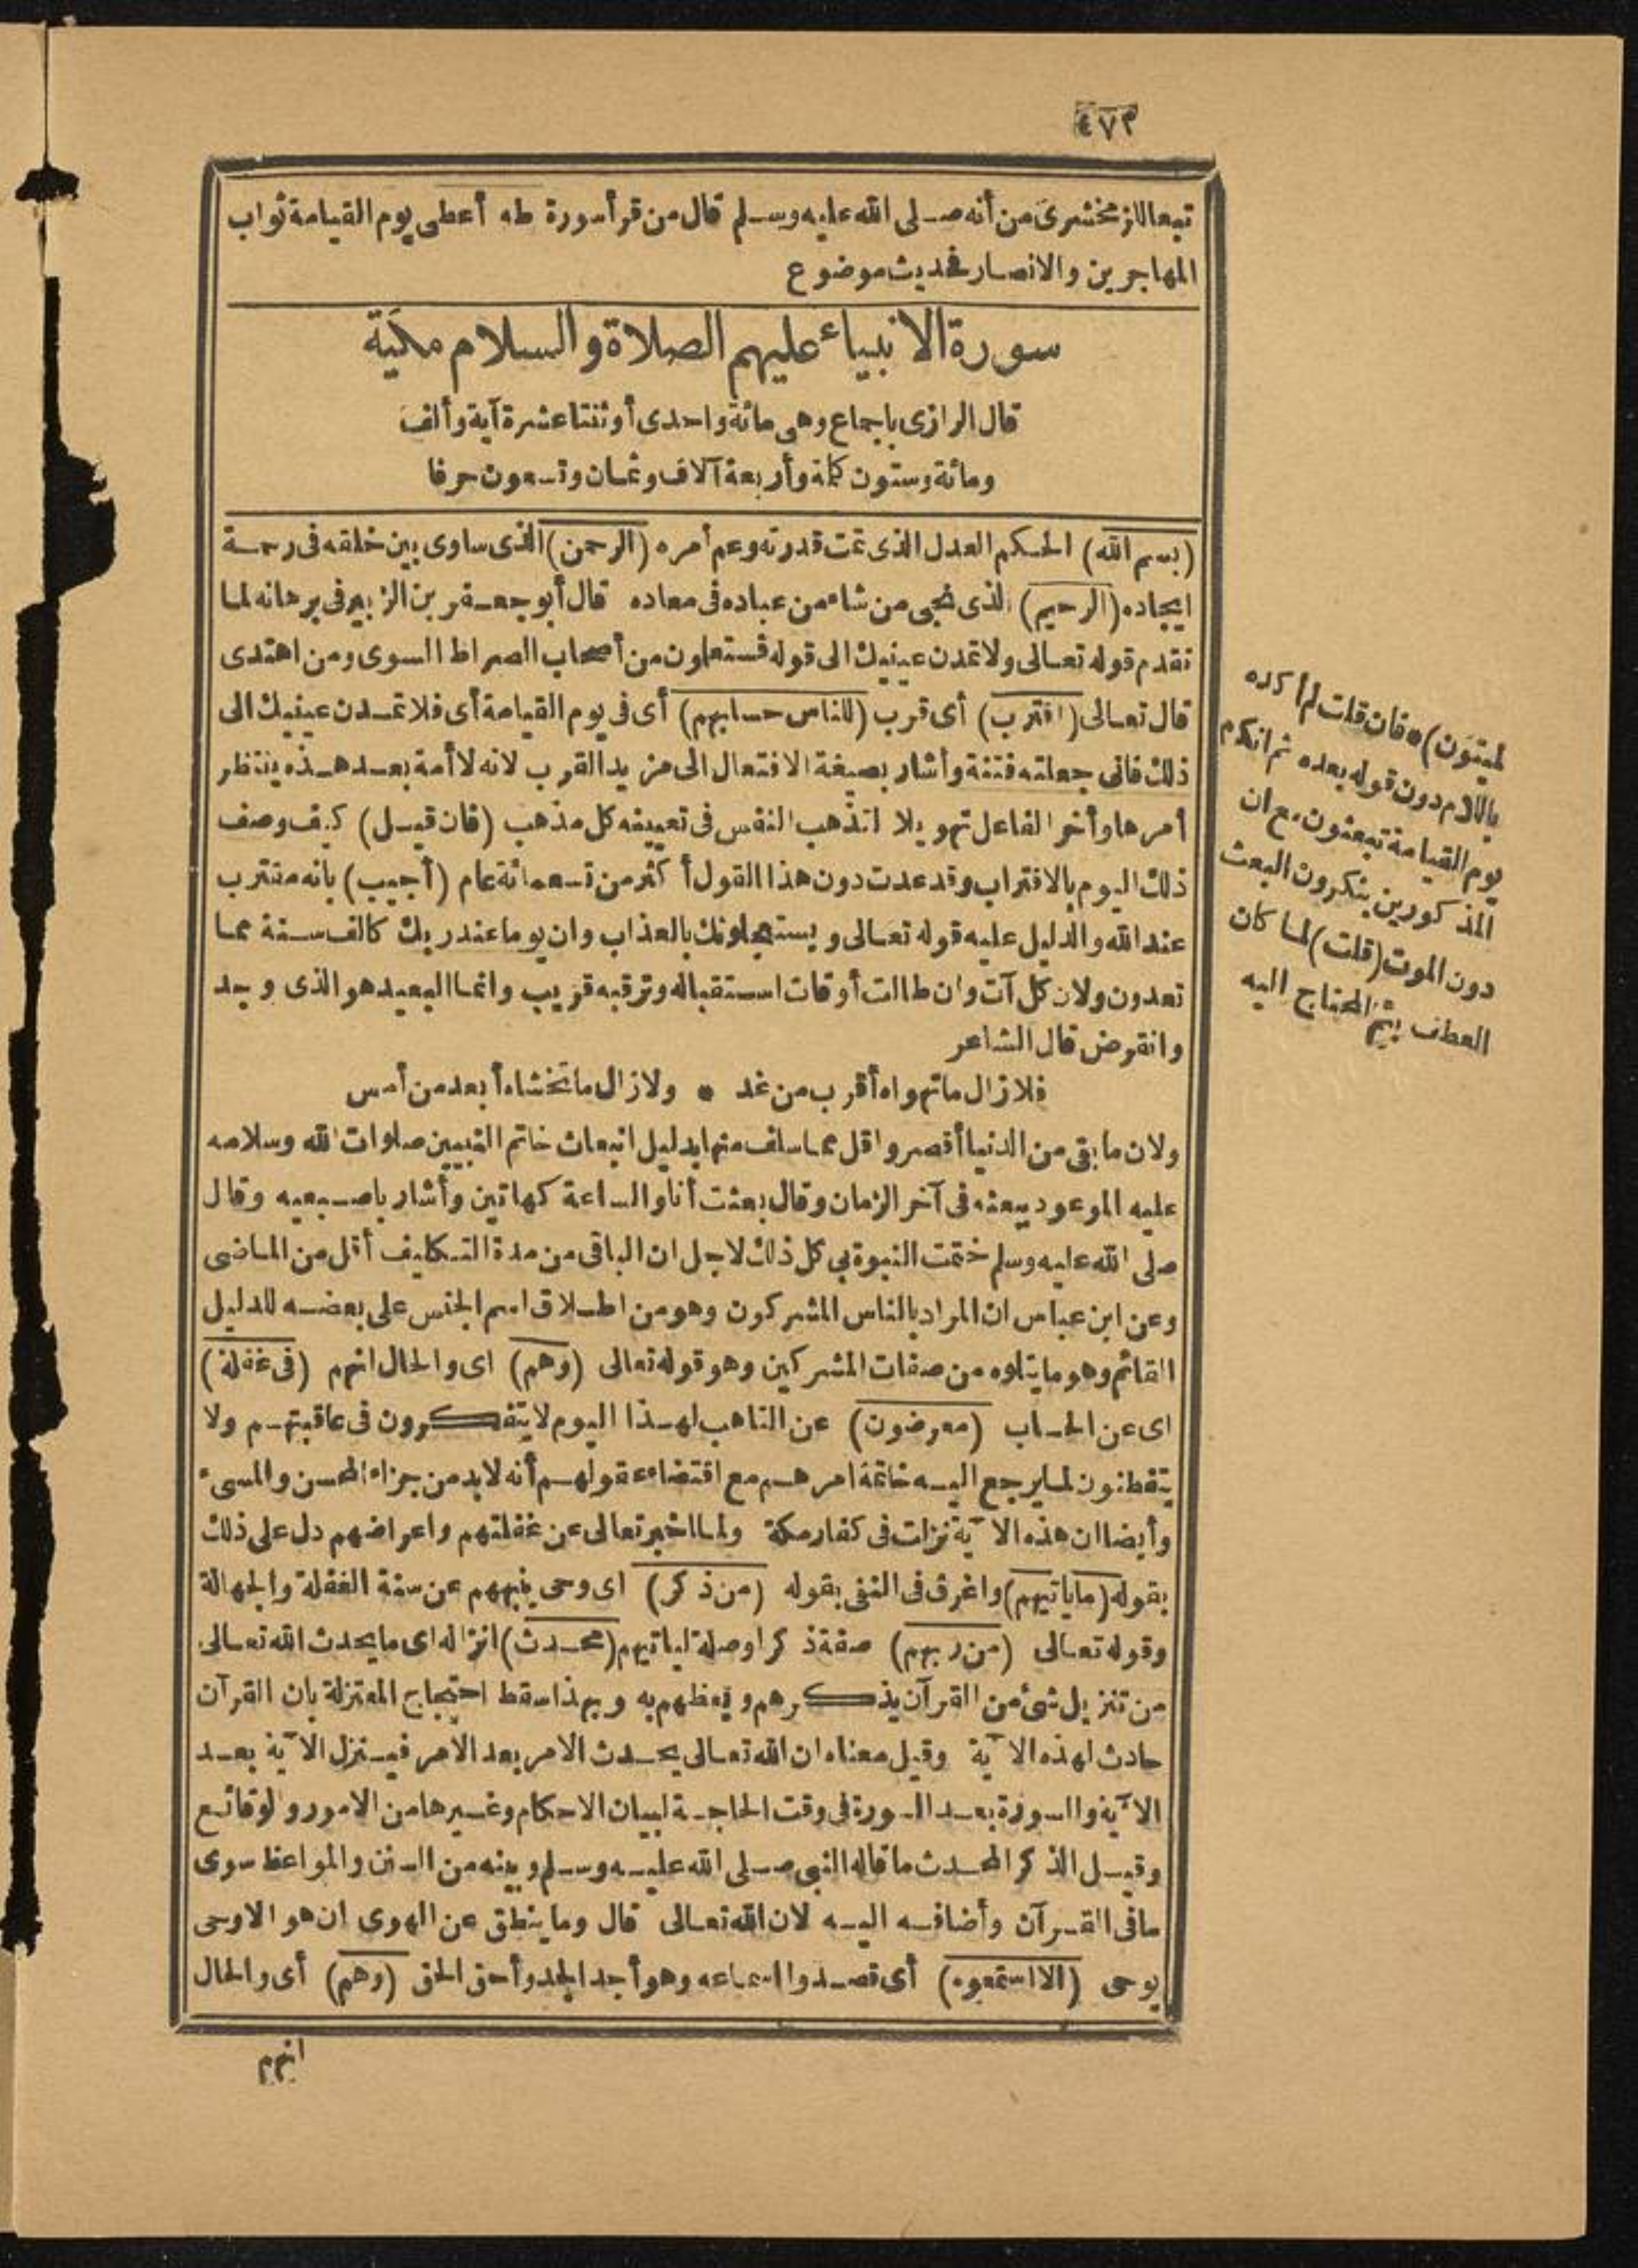 ٤٧٣
تبعا للزمخشرى من أنه صلى الله عليه وسلم قال من قرأ سورة طه أعطى يوم القيامة ثواب
المهاجرين والانصار فحديث موضوع
سورة الانبياء عليهم الصلاة والسلام مكية
قال الرازى باجماع وهى مائة واحدى أو ثنتا عشرة آية وألف
ومائة وستون كلمة وأربعة آلاف وثمان وتسعون حرفا
(بسم الله) الحكم العدل الذى تمت قدرته وعم أمره (الرحمن) الذى ساوى بين خلقه فى رحمة
ايجاده (الرحيم) الذى نجى من شاء من عباده فى معاده قال أبو جعفر بن الزبير فى برهانه لما
تقدم قوله تعالى ولا تمدن عينيك الى قوله فستعلمون من أصحاب الصراط السوى ومن اهتدى
قال تعالى (اقترب) أى قرب (للناس حسابهم) أى فى يوم القيامة أى فلا تمدن عينيك الى
ذلك فانى جعلته فتنة وأشار بصيغة الافتعال الى مزيد القرب لانه لا أمة بعد هذه ينتظر
أمرها وأخر الفاعل تهويلا لتذهب النفس فى تعيينه كل مذهب (فان قيل) كيف وصف
ذلك اليوم بالاقتراب وقد عدت دون هذا القول أكثر من تسعمائة عام (أجيب) بانه مقترب
عند الله والدليل عليه قوله تعالى ويستعجلونك بالعذاب وان يوما عند ربك كالف سنة مما
تعدون ولان كل آت وان طالت أوقات استقباله وترقبه قريب وانما البعيد هو الذى وجد
وانقرض قال الشاعر
فلا زال ما تهواه أقرب من غد * ولا زال ما تخشاه أبعد من أمس
ولان ما بقى من الدنيا أقصر واقل مما سلف منها بدليل انبعاث خاتم النبيين صلوات الله وسلامه
عليه الموعود ببعثه فى آخر الزمان وقال بعثت أنا والساعة كهاتين وأشار باصبعيه وقال
صلى الله عليه وسلم ختمت النبوة بى كل ذلك لاجل ان الباقى من مدة التكليف أقل من الماضى
وعن ابن عباس ان المراد بالناس المشركون وهو من اطلاق اسم الجنس على بعضه للدليل
القائم وهو ما يتلوه من صفات المشركين وهو قوله تعالى (وهم) اى والحال انهم (فى غفلة)
اى عن الحساب (معرضون) عن التاهب لهذا اليوم لا يتفكرون فى عاقبتهم ولا
يتفطنون لما يرجع اليه خاتمة امرهم مع اقتضاء عقولهم أنه لا بد من جزاء المحسن والمسىء
وأيضا ان هذه الآية نزلت فى كفار مكة ولما اخبر تعالى عن غفلتهم واعراضهم دل على ذلك
بقوله (ما ياتيهم) واغرق فى النفى بقوله (من ذكر) اى وحى ينبههم عن سنة الغفلة والجهالة
وقوله تعالى (من ربهم) صفة ذكر او صلة لياتيهم (محدث) انزاله اى ما يحدث الله تعالى
من تنزيل شئ من القرآن يذكرهم ويعظهم به وبهذا سقط احتجاج المعتزلة بان القرآن
حادث لهذه الآية وقيل معناه ان الله تعالى يحدث الامر بعد الأمر فينزل الآية بعد
الآية والسورة بعد السورة فى وقت الحاجة لبيان الاحكام وغيرها من الامور والوقائع
وقيل الذكر المحدث ما قاله النبى صلى الله عليه وسلم وبينه من السنن والمواعظ سوى
ما فى القرآن وأضافه اليه لان الله تعالى قال وما ينطق عن الهوى ان هو الا وحى
يوحى (الا استمعوه) أى قصدوا اسماعه وهو أجد الجد وأحق الحق (وهم) أى والحال
انهم
لميتون) * فان قلت لم أكده
باللام دون قوله بعده ثم انكم
يوم القيامة تبعثون مع ان
المذكورين ينكرون البعث
دون الموت (قلت) لما كان
العطف بثم المحتاج اليه